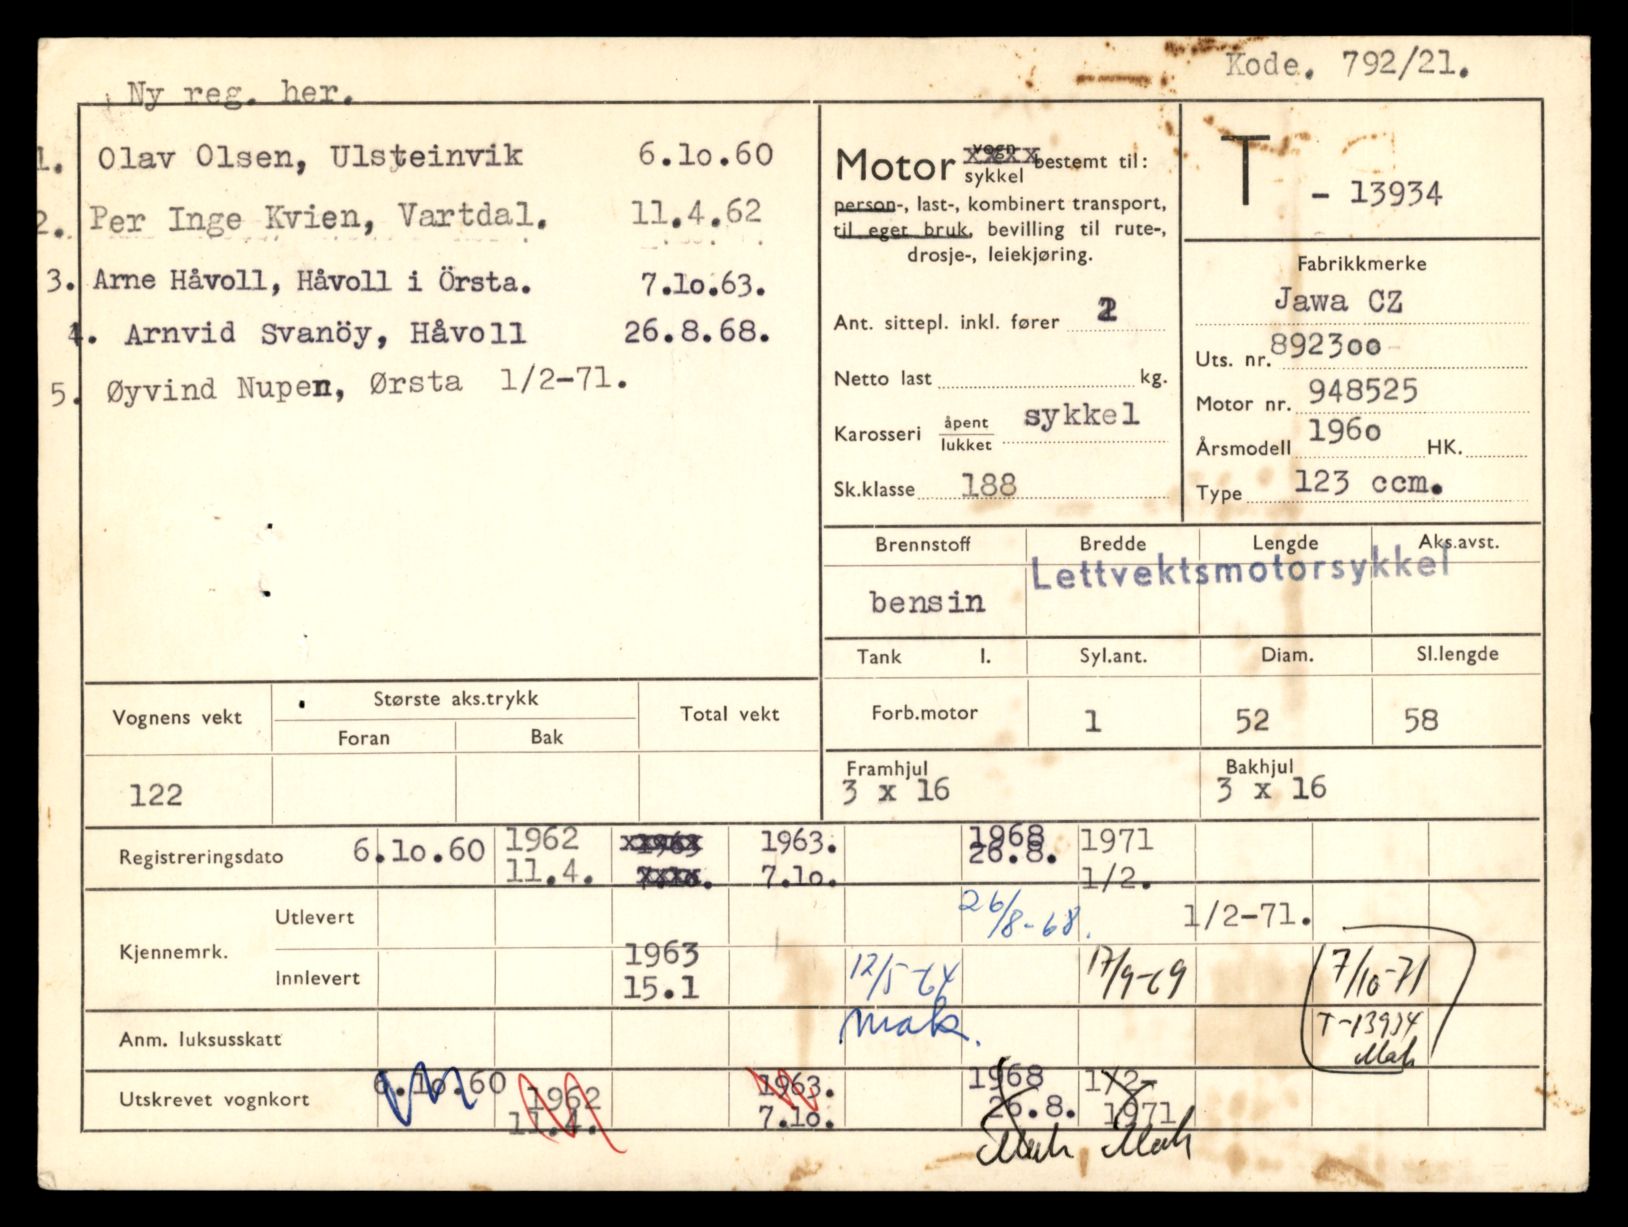 Kode. 792/21.
Ny reg. her.
1. Olav Olsen, Ulsteinvik 6.10.60
2. Per Inge Kvien, Vartdal. 11.4.62
3. Arne Håvoll, Håvoll i Örsta. 7.10.63.
4. Arnvid Svanöy, Håvoll 26.8.68.
5. Øyvind Nupen, Ørsta 1/2-71.
Motor vogn sykkel bestemt til:
person-, last-, kombinert transport,
til eget bruk, bevilling til rute-,
drosje-, leiekjøring.
Ant. sittepl. inkl. fører 2
Netto last kg.
Karosseri åpent lukket sykkel
Sk.klasse 188
T - 13934
Fabrikkmerke
Jawa CZ
Uts. nr. 892300
Motor nr. 948525
Årsmodell 1960 HK.
Type 123 ccm.
Brennstoff Bredde Lengde Aks.avst.
Lettvektsmotorsykkel
bensin
Tank l. Syl.ant. Diam. Sl.lengde
Forb.motor 1 52 58
Framhjul Bakhjul
3 x 16 3 x 16
Vognens vekt Største aks.trykk Total vekt
Foran Bak
122
Registreringsdato 6.10.60 1962 1963 1963. 1968 1971
11.4. 7.10. 7.10. 26.8. 1/2.
Kjennemrk.
Utlevert 26/8-68. 1/2-71.
Innlevert 1963 15.1 12/5-64 17/9-69 7/10-71
Anm. luksusskatt mak. T-13934
Mak
Utskrevet vognkort 6.10.60 1962 1963. 1968 1/2-
11.4. 7.10. 26.8. 1971
Mak Mak